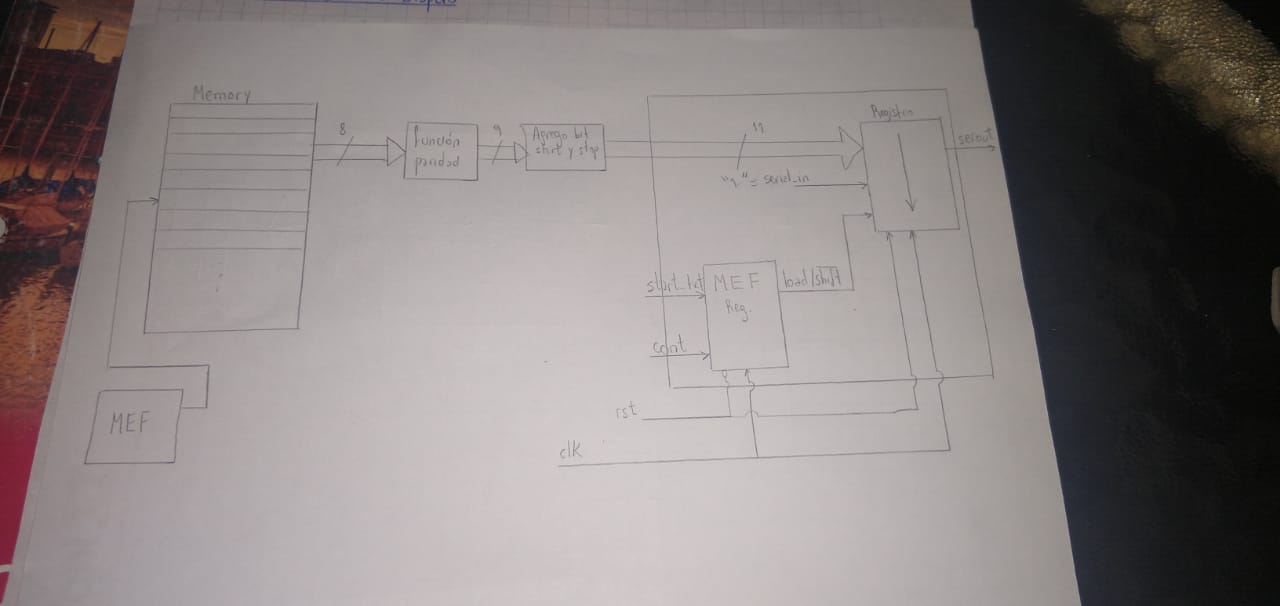 Memory
8
función
paridad
9
Agrego bit
start y stop
11
Registro
serout
"1" = serial_in
start_txt
MEF
Reg.
load/shift
cont
MEF
rst
clk